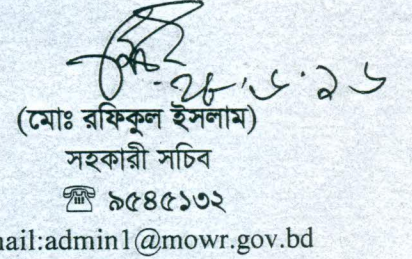 (মোঃ রফিকুল ইসলাম)
সহকারী সচিব
☎ ৯৫৪৫১৩২
mail:admin1@mowr.gov.bd